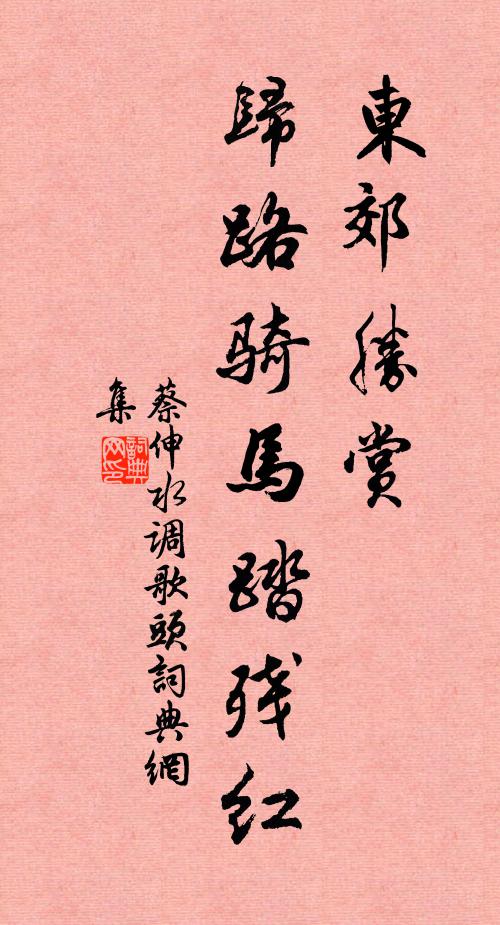 東郊勝賞
歸路騎馬踏殘紅
蔡伸水调歌頭詞典網
集
詞典网印